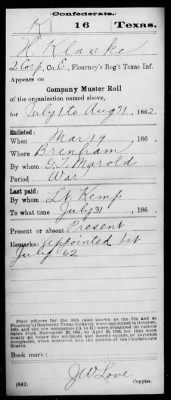 Confederate.
K 16 Texas.
H Klaeke
2 Corp, Co. E, Flournoy's Reg't Texas Inf.
Appears on
Company Muster Roll
of the organization named above,
for July 1 to Aug 31, 1862.
Enlisted:
When Mar 19, 186 .
Where Brenham
By whom G. T. Marold
Period War
Last paid:
By whom Lt. Kemp
To what time July 31, 186 .
Present or absent Present
Remarks: appointed 1st
July '62
Book mark:
J W Love
(642) Copyist.